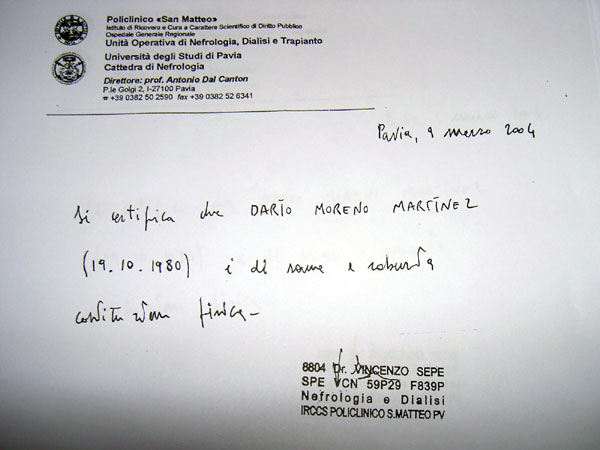 Policlinico «San Matteo»
Istituto di Ricovero e Cura a Carattere Scientifico di Diritto Pubblico
Ospedale Generale Regionale
Unità Operativa di Nefrologia, Dialisi e Trapianto
Università degli Studi di Pavia
Cattedra di Nefrologia
Direttore: prof. Antonio Dal Canton
P.le Golgi 2, I-27100 Pavia
☎ +39 0382 50 2590 fax +39 0382 52 6341
Pavia, 9 marzo 2004
Si certifica che DARÍO MORENO MARTÍNEZ
(19.10.1980) è di sana e robusta
costituzione fisica-
8804 Dr. VINCENZO SEPE
SPE VCN 59P29 F839P
Nefrologia e Dialisi
IRCCS POLICLINICO S.MATTEO PV